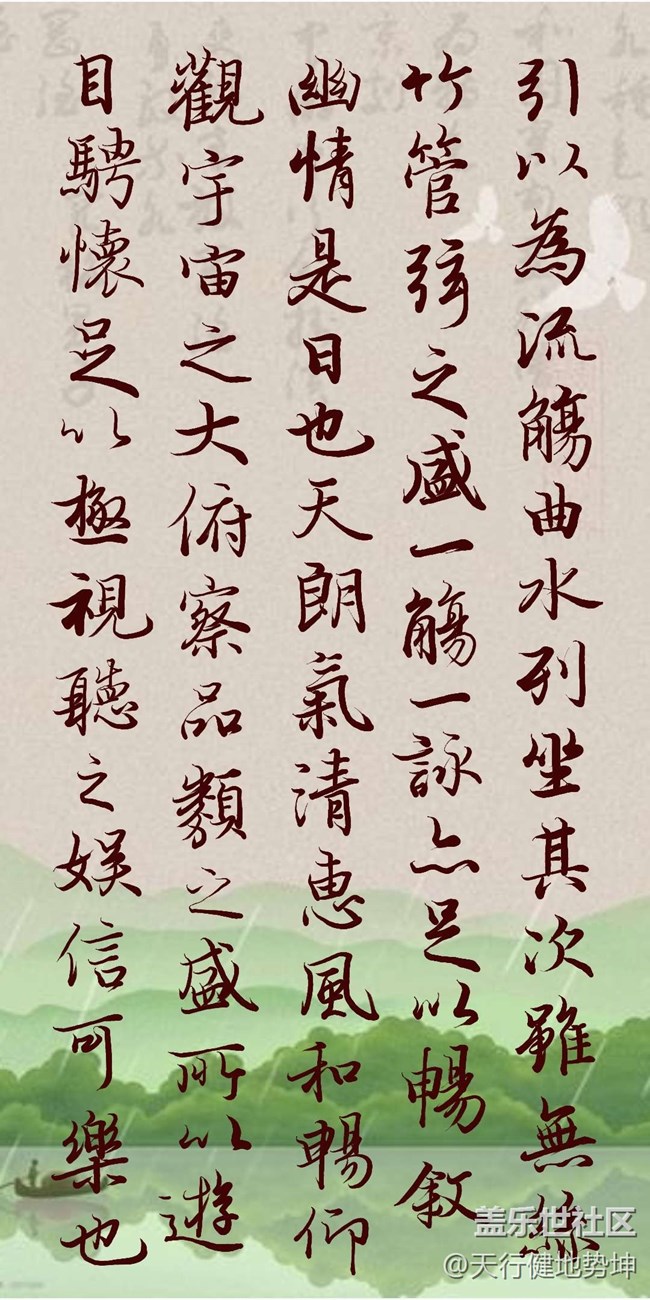 引以為流觴曲水列坐其次雖無絲
竹管弦之盛一觴一詠亦足以暢敘
幽情是日也天朗氣清惠風和暢仰
觀宇宙之大俯察品類之盛所以遊
目騁懷足以極視聽之娛信可樂也
盖乐世社区
@天行健地势坤